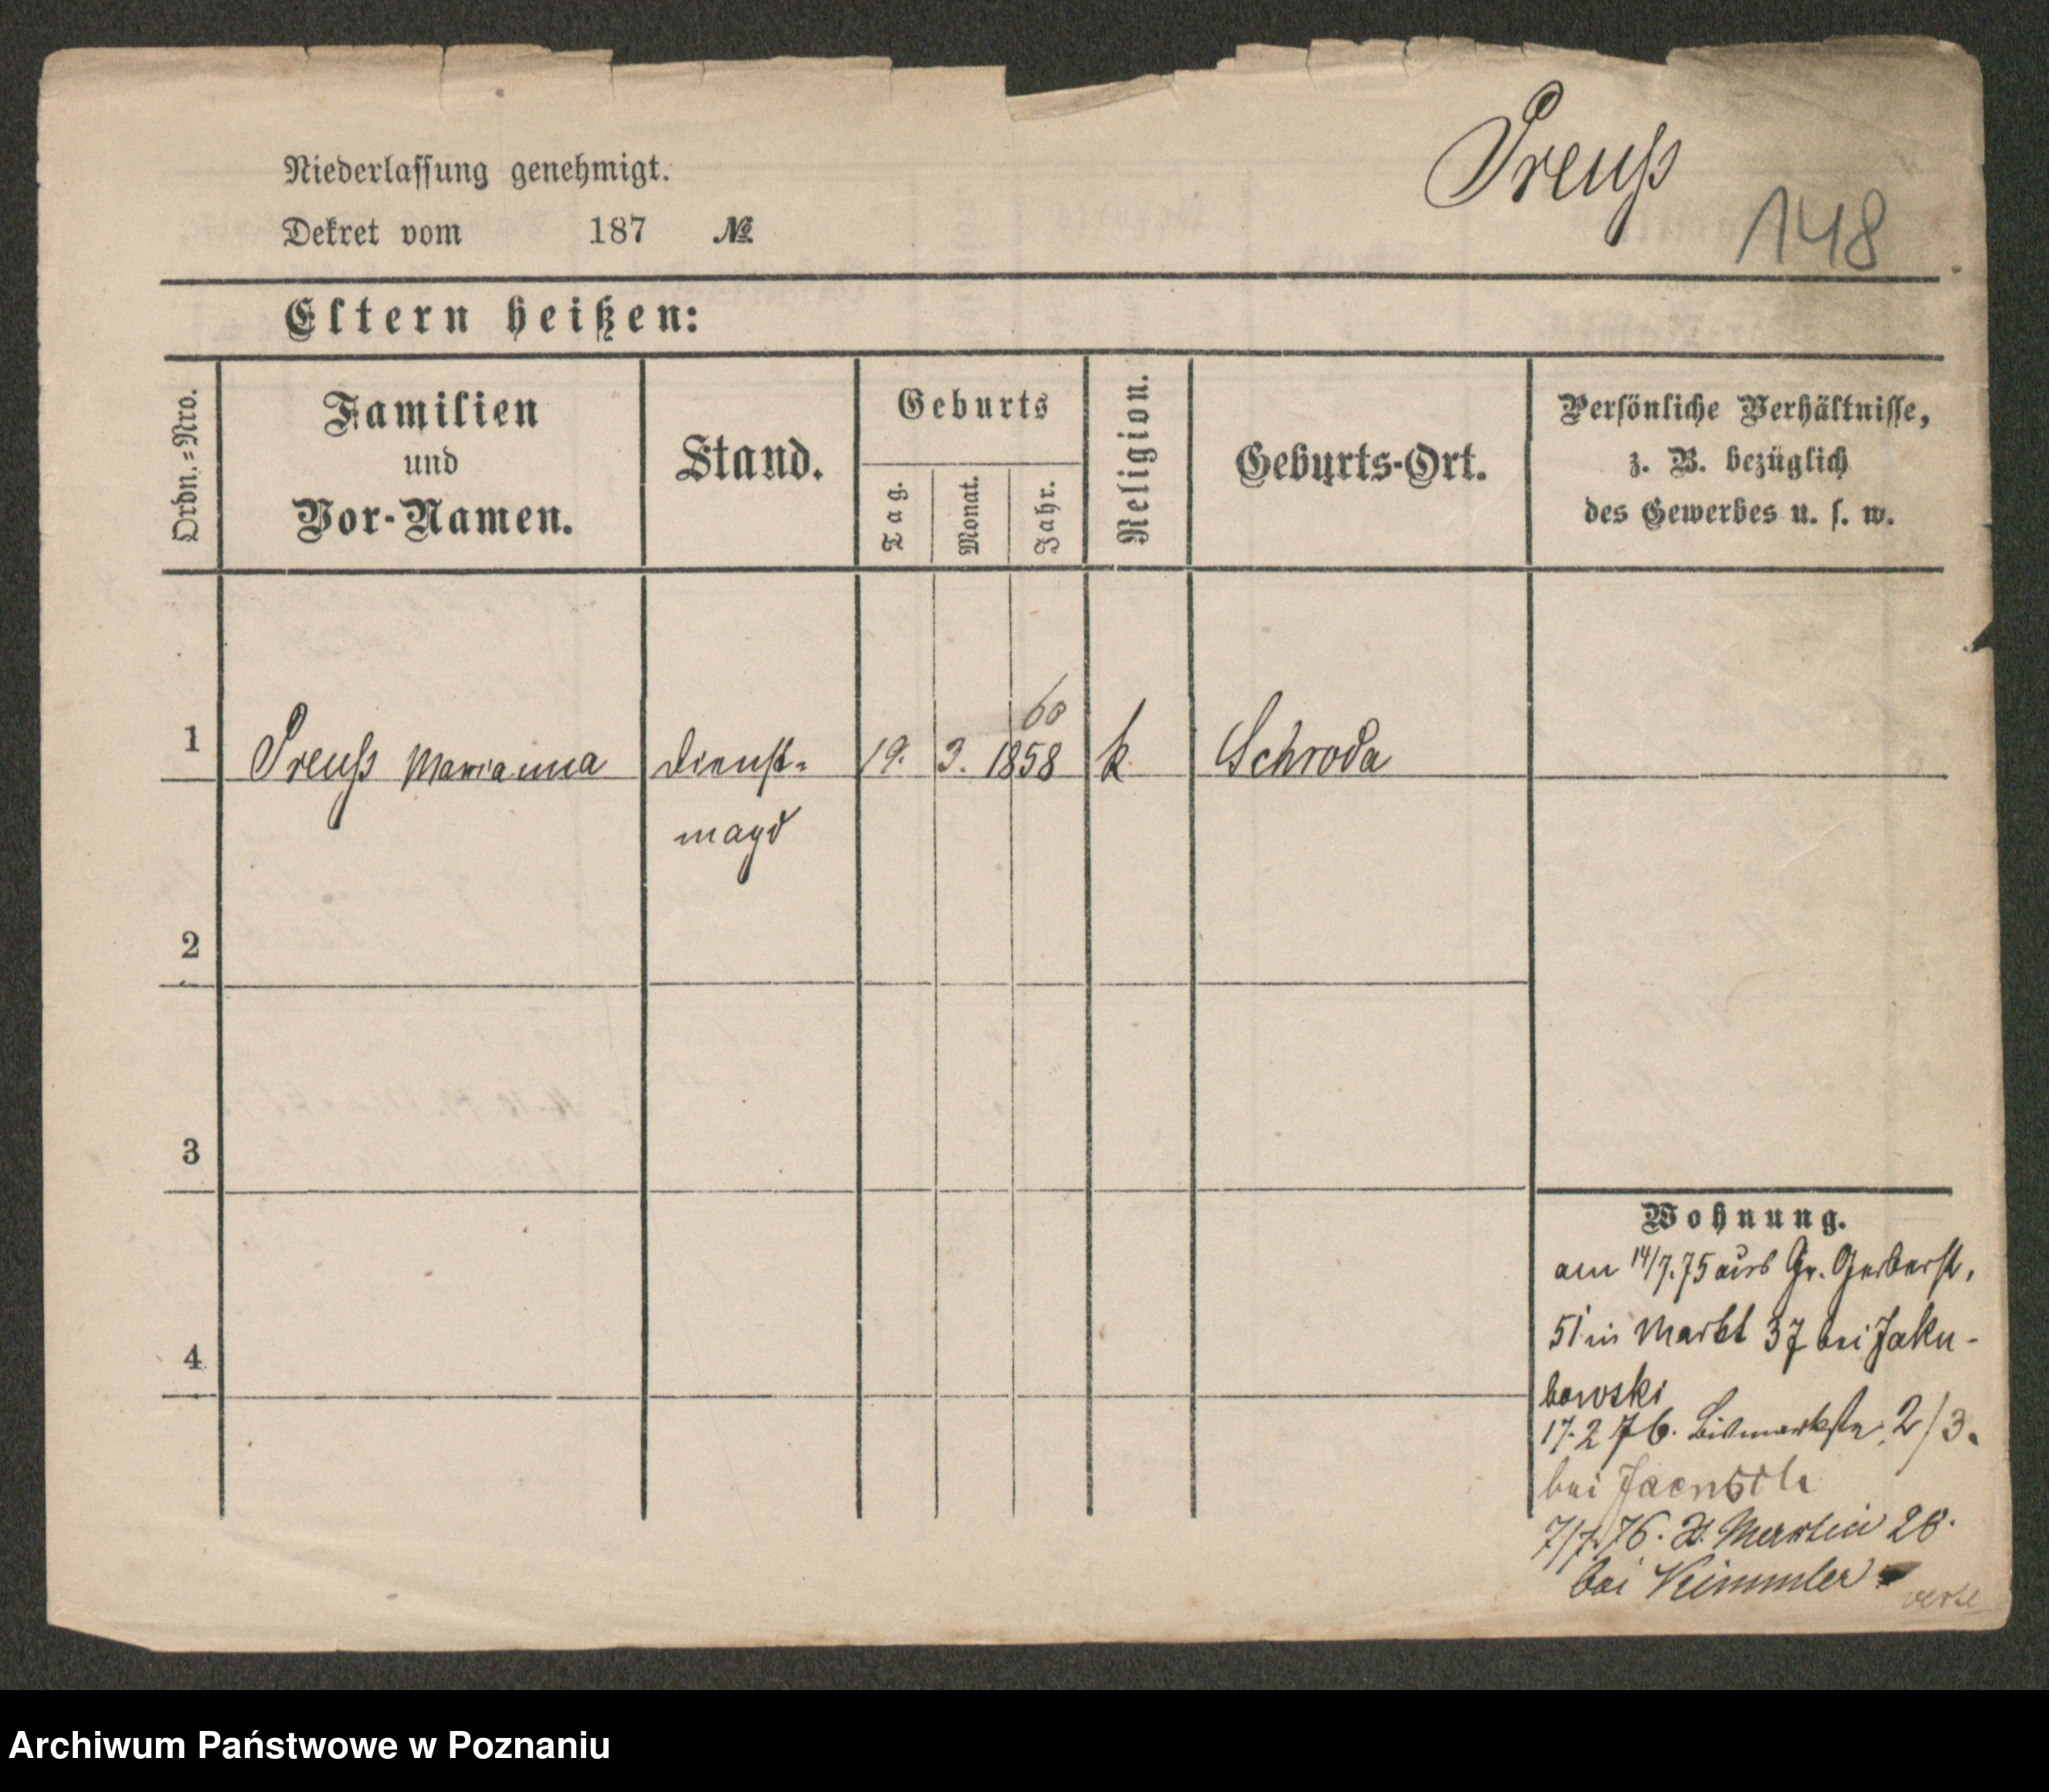 Niederlassung genehmigt.
Dekret vom 187 №
Preuß
148
Eltern heißen:
Ordn.=Nro.
Familien
und
Vor-Namen.
Stand.
Geburts
Tag.
Monat.
Jahr.
Religion.
Geburts-Ort.
Persönliche Verhältnisse,
z. B. bezüglich
des Gewerbes u. s. w.
60
1 Preuß Marianna Dienst- 19. 3. 1858 k Schroda
magd
2
3
4
Wohnung.
am 14/7.75 aus Gr. Gerberst.
51 in Markt 37 bei Jaku-
bowski
17.2 76. Bismarckstr. 2/3.
bei Jaensch
7/7 76. St. Martin 28.
bei Kimmler